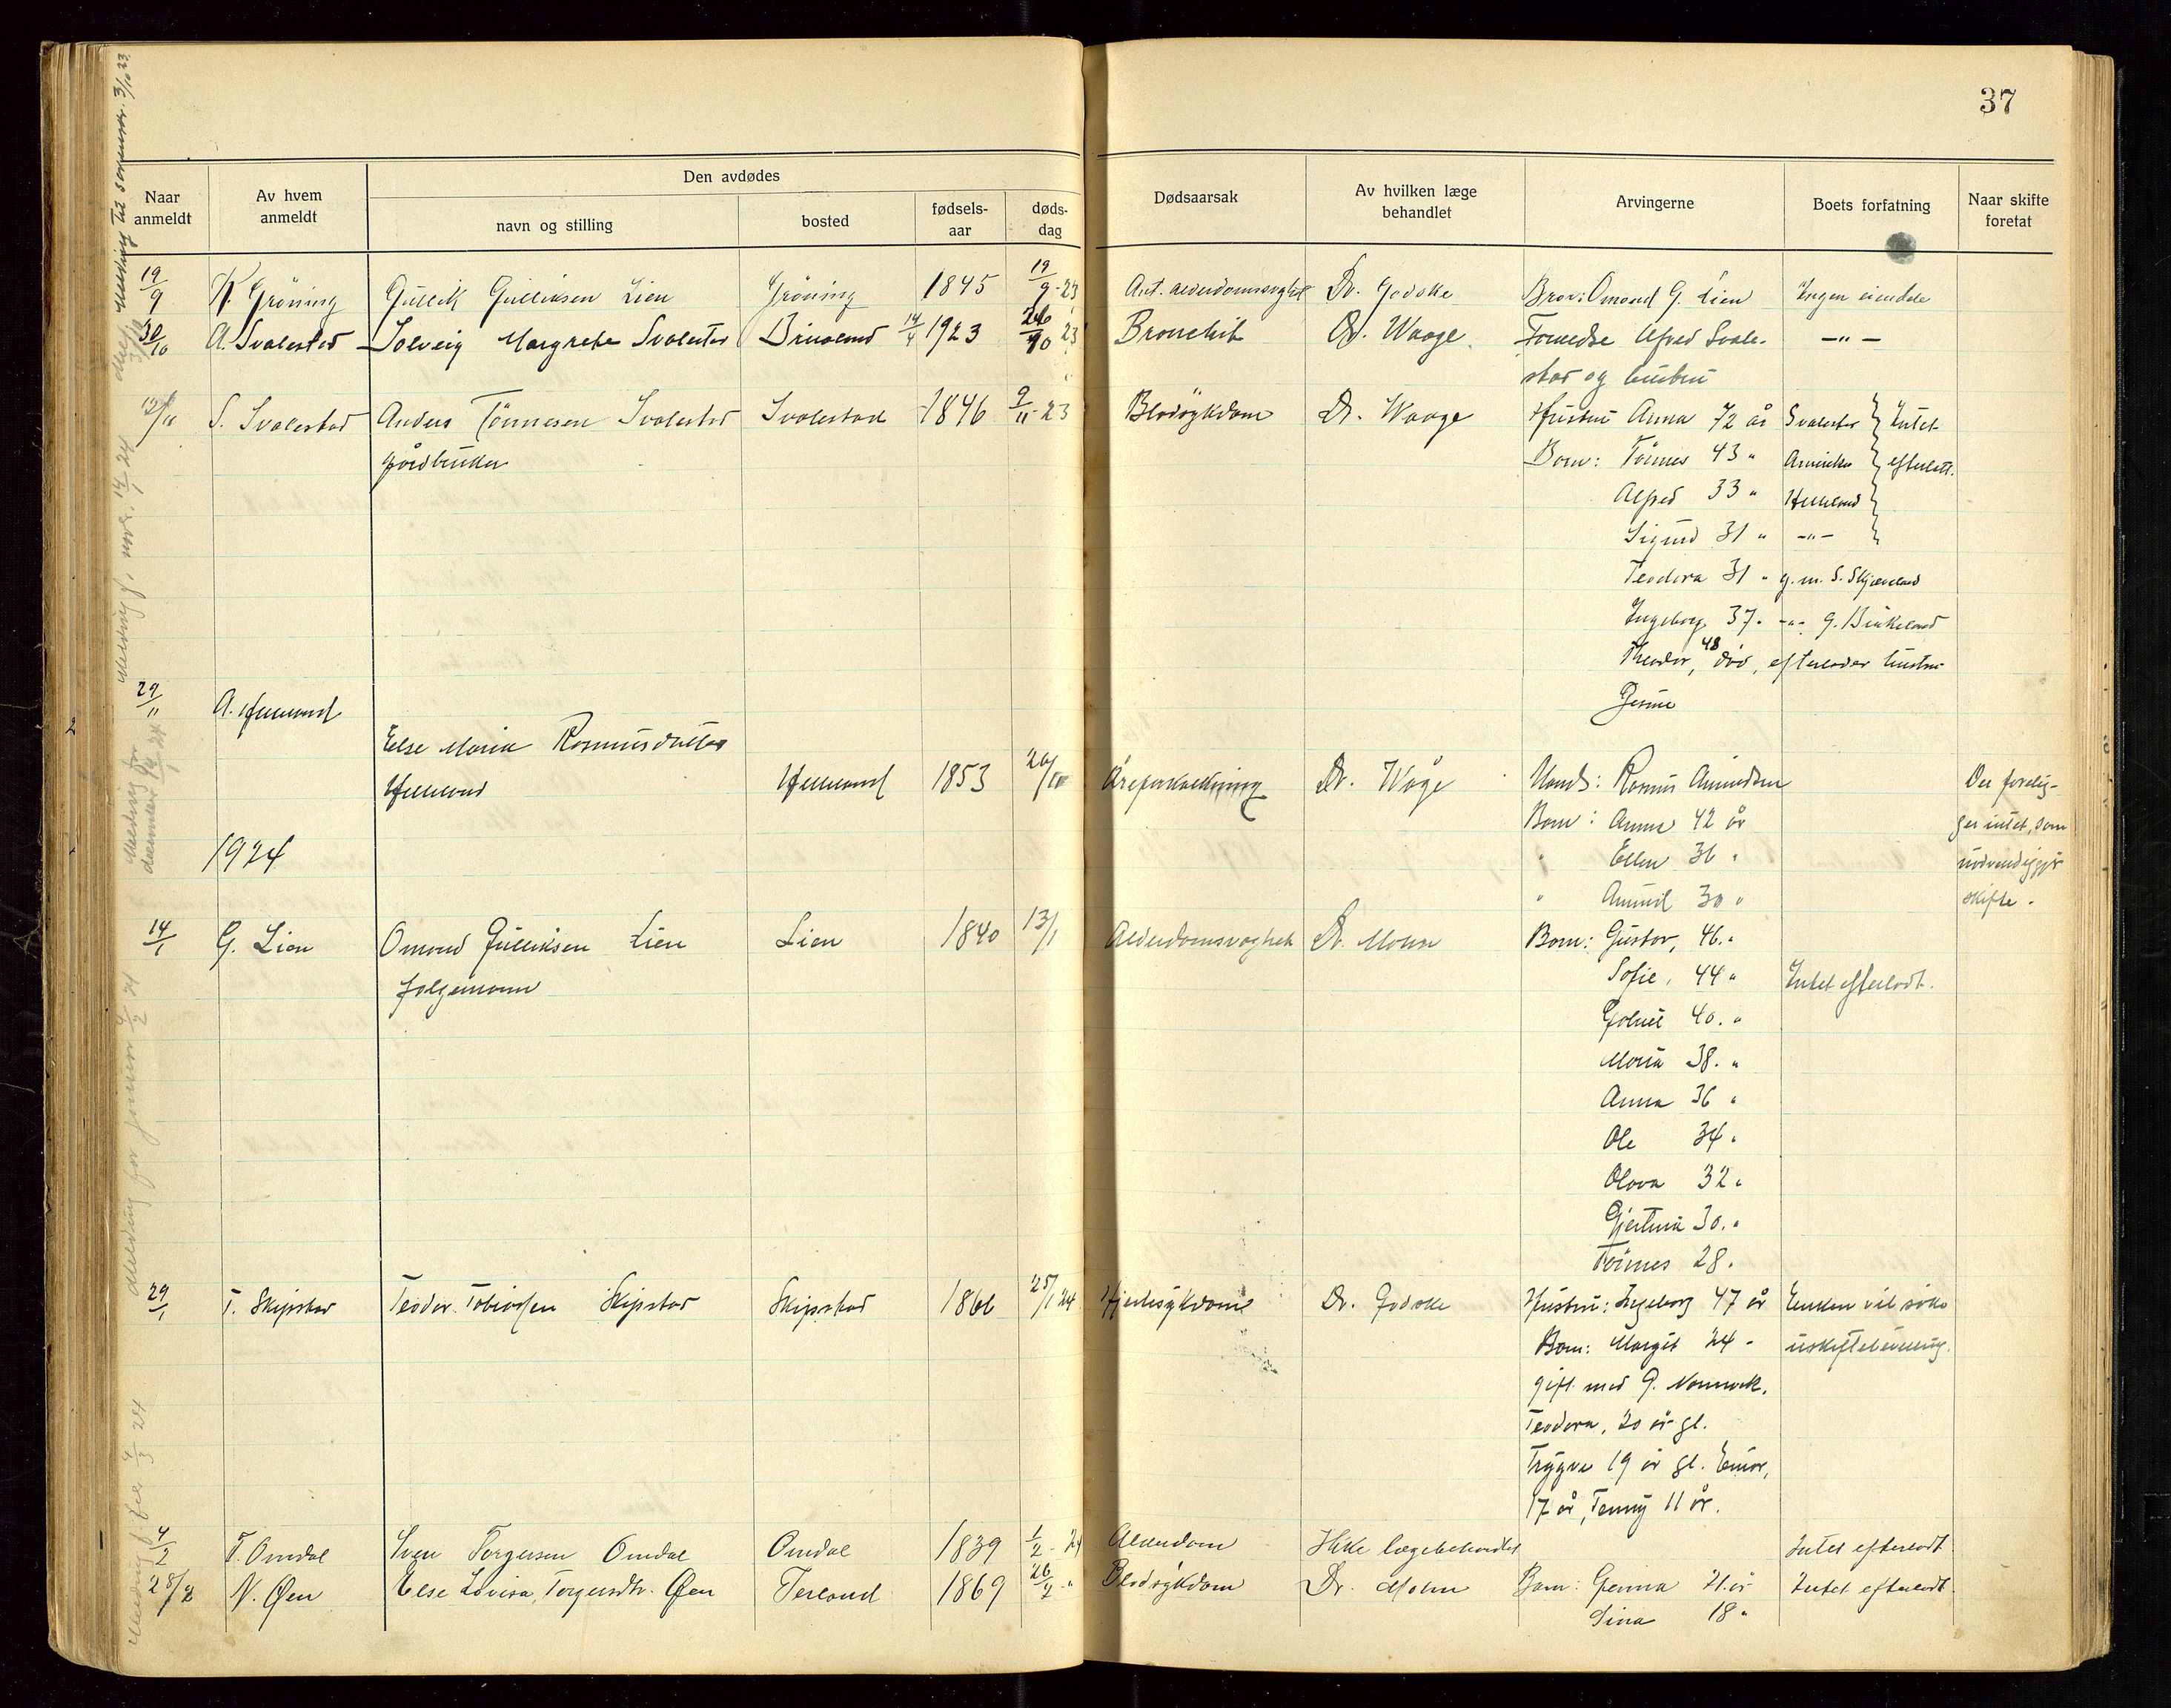 37
Naar anmeldt
Av hvem anmeldt
Den avdødes
navn og stilling
bosted
fødsels-aar
døds-dag
Dødsaarsak
Av hvilken læge behandlet
Arvingerne
Boets forfatning
Naar skifte foretat
19/9 Gröning Gullik Gulliksen Lien Gröning 1845 19/9-23 Dr. Godske Bror: Omund G. Lien Ingen eiendele
30/10 A. Svalestad Solveig Margrete Svalestad 14/4 1923 26/10 23 Bronchit Dr. Waage Forældre Alfred Svale- —"—
stad og hustru
12/11 S. Svalestad Anders Tönnesen Svalestad Svalestad 1846 9/11-23 Blodsykdom Dr. Waage Hustru Anna 72 år Svalestad Intet
gårdbruker Born: Tönnes 43 " Amerika efterlatt.
Alfred 33 " Helleland
Sigurd 31 " —"—
Teodora 31 " g.m. S. Skjæveland
Ingeborg 37 " —"— G. Birkeland
Theodor, 48 död, efterlader hustru
29/11 A. Helleland
Else Maria Rasmusdatter
Helleland Helleland 1853 26/11 Åreforkalkning Dr. Wåge Mand: Rasmus Amundsen Der forelig-
Born: Anna 42 år ger intet, som
1924 " Ellen 36 " nödvendiggjör
" Amund 30 " skifte.
14/1 G. Lien Omund Gulliksen Lien Lien 1840 13/1 Alderdomssvaghet Dr. Mohn Born: Gustav, 46 "
folgemann Sofie, 44 " Intet efterladt.
40 "
Maria 38 "
Anna 36 "
Ole 34 "
Olava 32 "
Gjertina 30 "
Tönnes 28 "
29/1 T. Skipstad Teodor Tobiassen Skipstad Skipstad 1866 25/1 24 Hjertesykdom Dr. Godske Hustru: Ingeborg 47 år Enken vil söke
Born: Margit 24 - uskiftebevilling.
gift med G.
Teodora, 20 år gl.
Trygve 19 år gl. Einar,
17 år, Tenny 11 år.
4/2 T. Omdal Sven Torgersen Omdal Omdal 1839 1/2-24 Alderdom Ikke lægebehandlet Intet efterladt
28/2 N. Øen Else Lovisa Torgersdtr. Øen Terland 1869 26/2 " Blodsykdom Dr. Mohn Born: 21 år Intet efterladt
Sina 18 "
Melding til sorenskr. 3/10 23.
Melding f. nov. 14/1 24
Melding for
december 14/1 24
Melding for januar 4/2 24
Melding f. feb 4/3 24